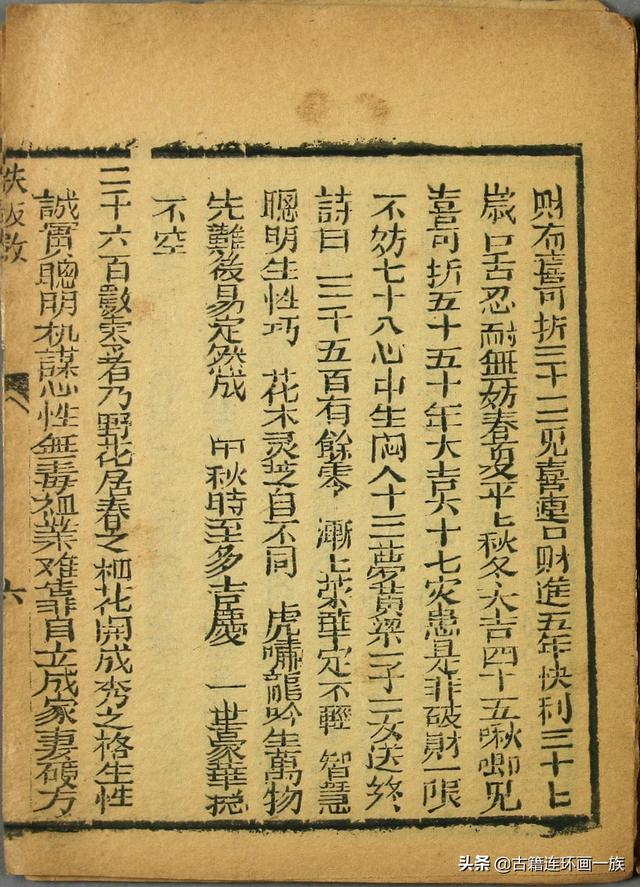 則有喜可折三十二見喜連口財進五年快利三十七
歲口舌忍耐無妨春夏平上秋冬大吉四十五啾唧見
喜可折五十五十年大吉六十七灾患是非破財一限
不妨七十八心中生悶八十三夢黄粱一子二女送終
詩曰 三千五百有餘零 漸上荣華定不輕 智慧
聰明生性巧 花木灵芝自不同 虎嘯龍吟生萬物
先難後易定然成 中秋時至多吉慶 一世豪華
不空
二千六百數泰者乃野花居春之 花開成秀之格生性
誠實聰明机謀心性無毒祖業难靠自立成家妻硬方
鉄板数
六
头条 @古籍连环画一族